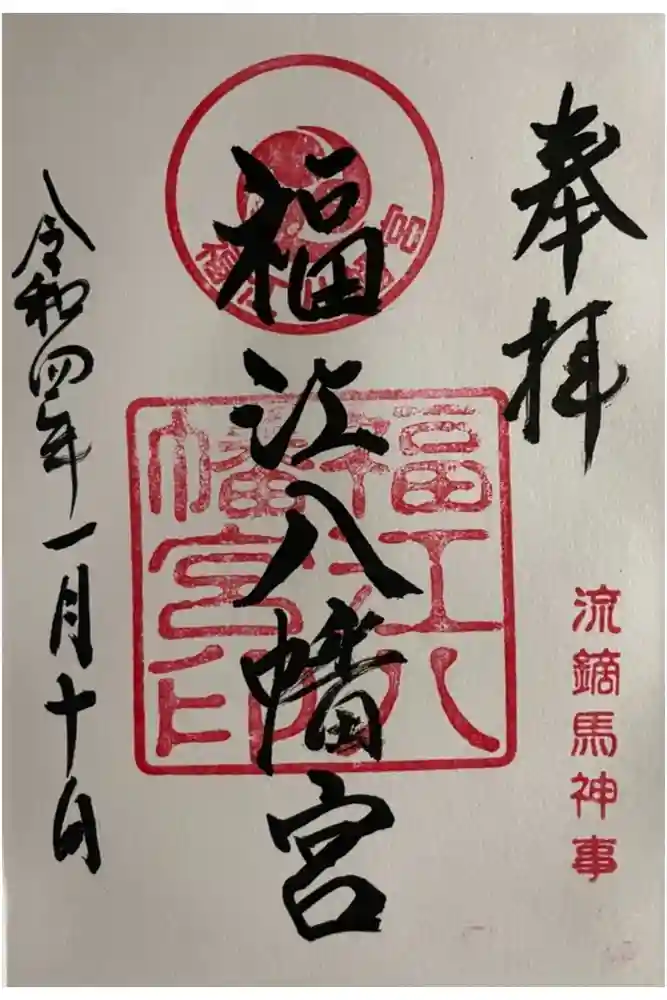 奉拝
流鏑馬神事
福江八幡宮
福江八幡宮
福江八
幡宮印
令和四年一月十日